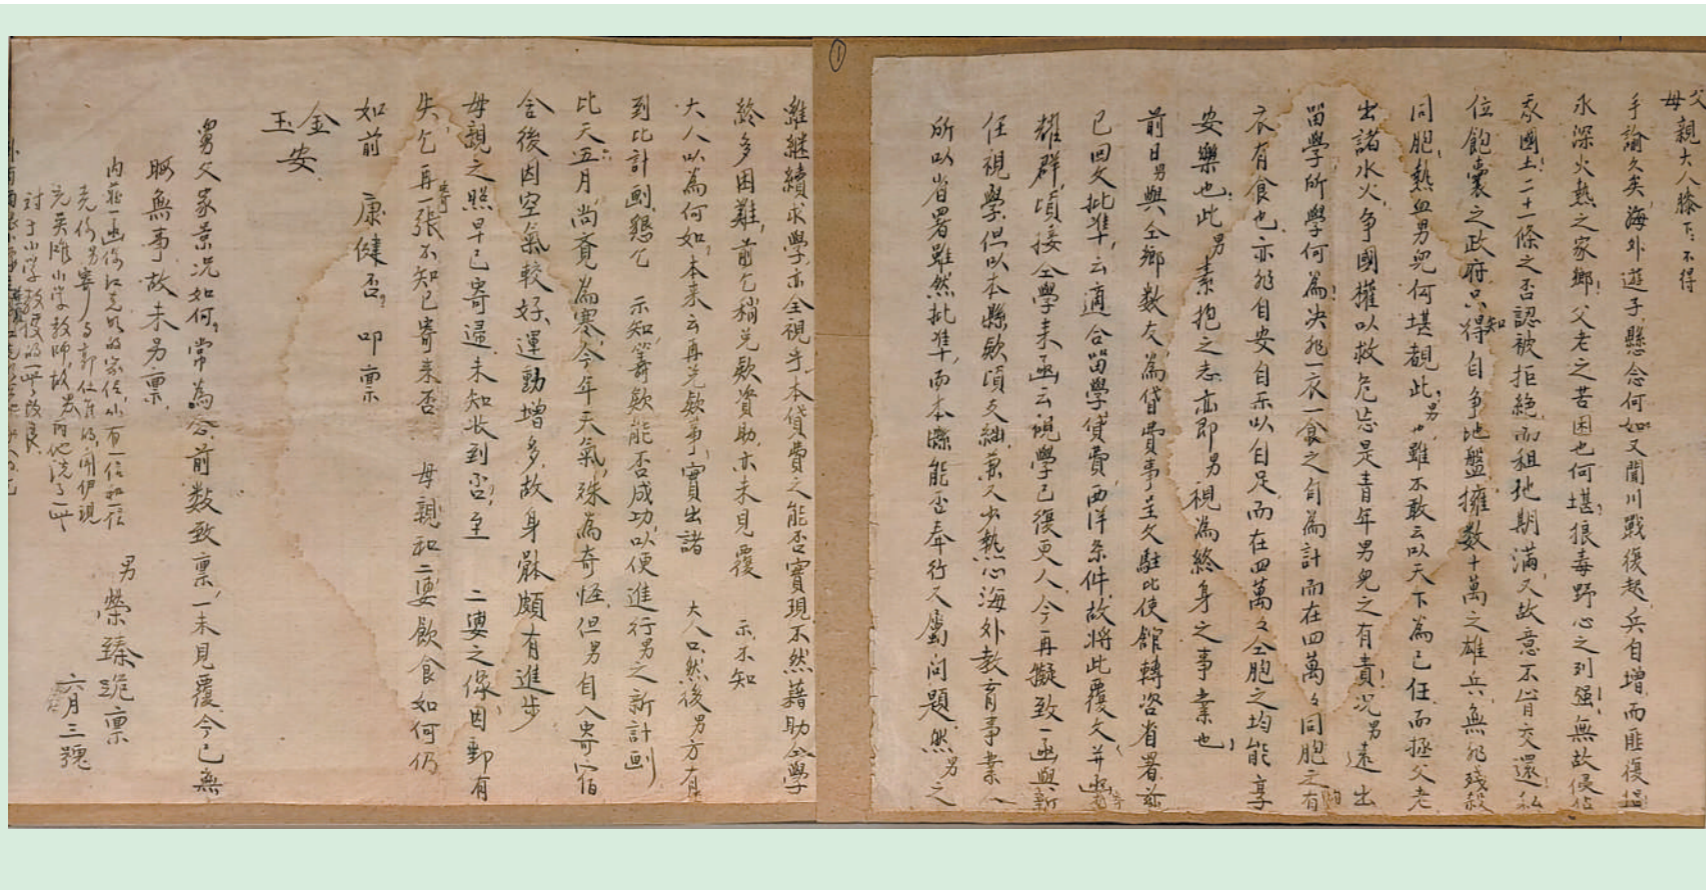 父母親大人膝下、不得
手諭久矣、海外遊子、懸念何如、又聞川戰復起、兵自增、而匪復猖
水深火熱之家鄉！父老之苦困也何堪、狼毒野心之列强！無故侵佔
我國土、二十一條之否認被拒絕、而租地期滿、又故意不肯交還！私
位飽囊之政府、只知得自争地盤、擁數十萬之雄兵、無非殘殺
同胞、熱血男兒何堪覩此、男也雖不敢云以天下為己任、而拯父老
出諸水火、争國權以救危亡、是青年男兒之有責、况男遠出
留學、所學何為、決非一衣一食之自為計、而在四萬々同胞之有
衣有食也、亦非自安自樂以自足、而在四萬々仝胞之均能享
安樂也、此男素抱之志、亦即男視為終身之事業也、
前日男與仝鄉數友、為貸費事呈文駐比使館轉咨省署、茲
已回文批準、云適合留學貸費西洋条件、故將此覆文并函
耀群、頃接仝學来函云視學已復更人、今再擬致一函與新
任視學、但以本縣欵項支絀、兼又少熱心海外教育事業人、
所以省署雖然批準、而本縣能否奉行又屬问題、然男之
難継續求學、亦全視乎本貸費之能否實現、不然藉助仝學
終多困難、前乞稍兑欵資助、亦未見覆　示、不知
大人以為何如、本来云再兑欵事、實出諸　大人口、然後男方有
到比計劃、懇乞　示知、籌欵能否成功、以便進行男之新計劃
比天五月、尚覺為寒、今年天氣、殊為奇怪、但男自入寄宿
舍後、因空氣較好、運動增多、故身骵頗有進步
母親之照、早已寄還、未知收到否、至　二嬢之像、因郵有
失、乞再寄一張、不知已寄来否　母親和二嬢飲食如何、仍
如前　康健否、叩禀
金安
玉
舅父家景况如何、常為念、前数致禀、一未見覆、今已無
暇、無事、故未另禀、
男 榮臻跪禀
六月三號